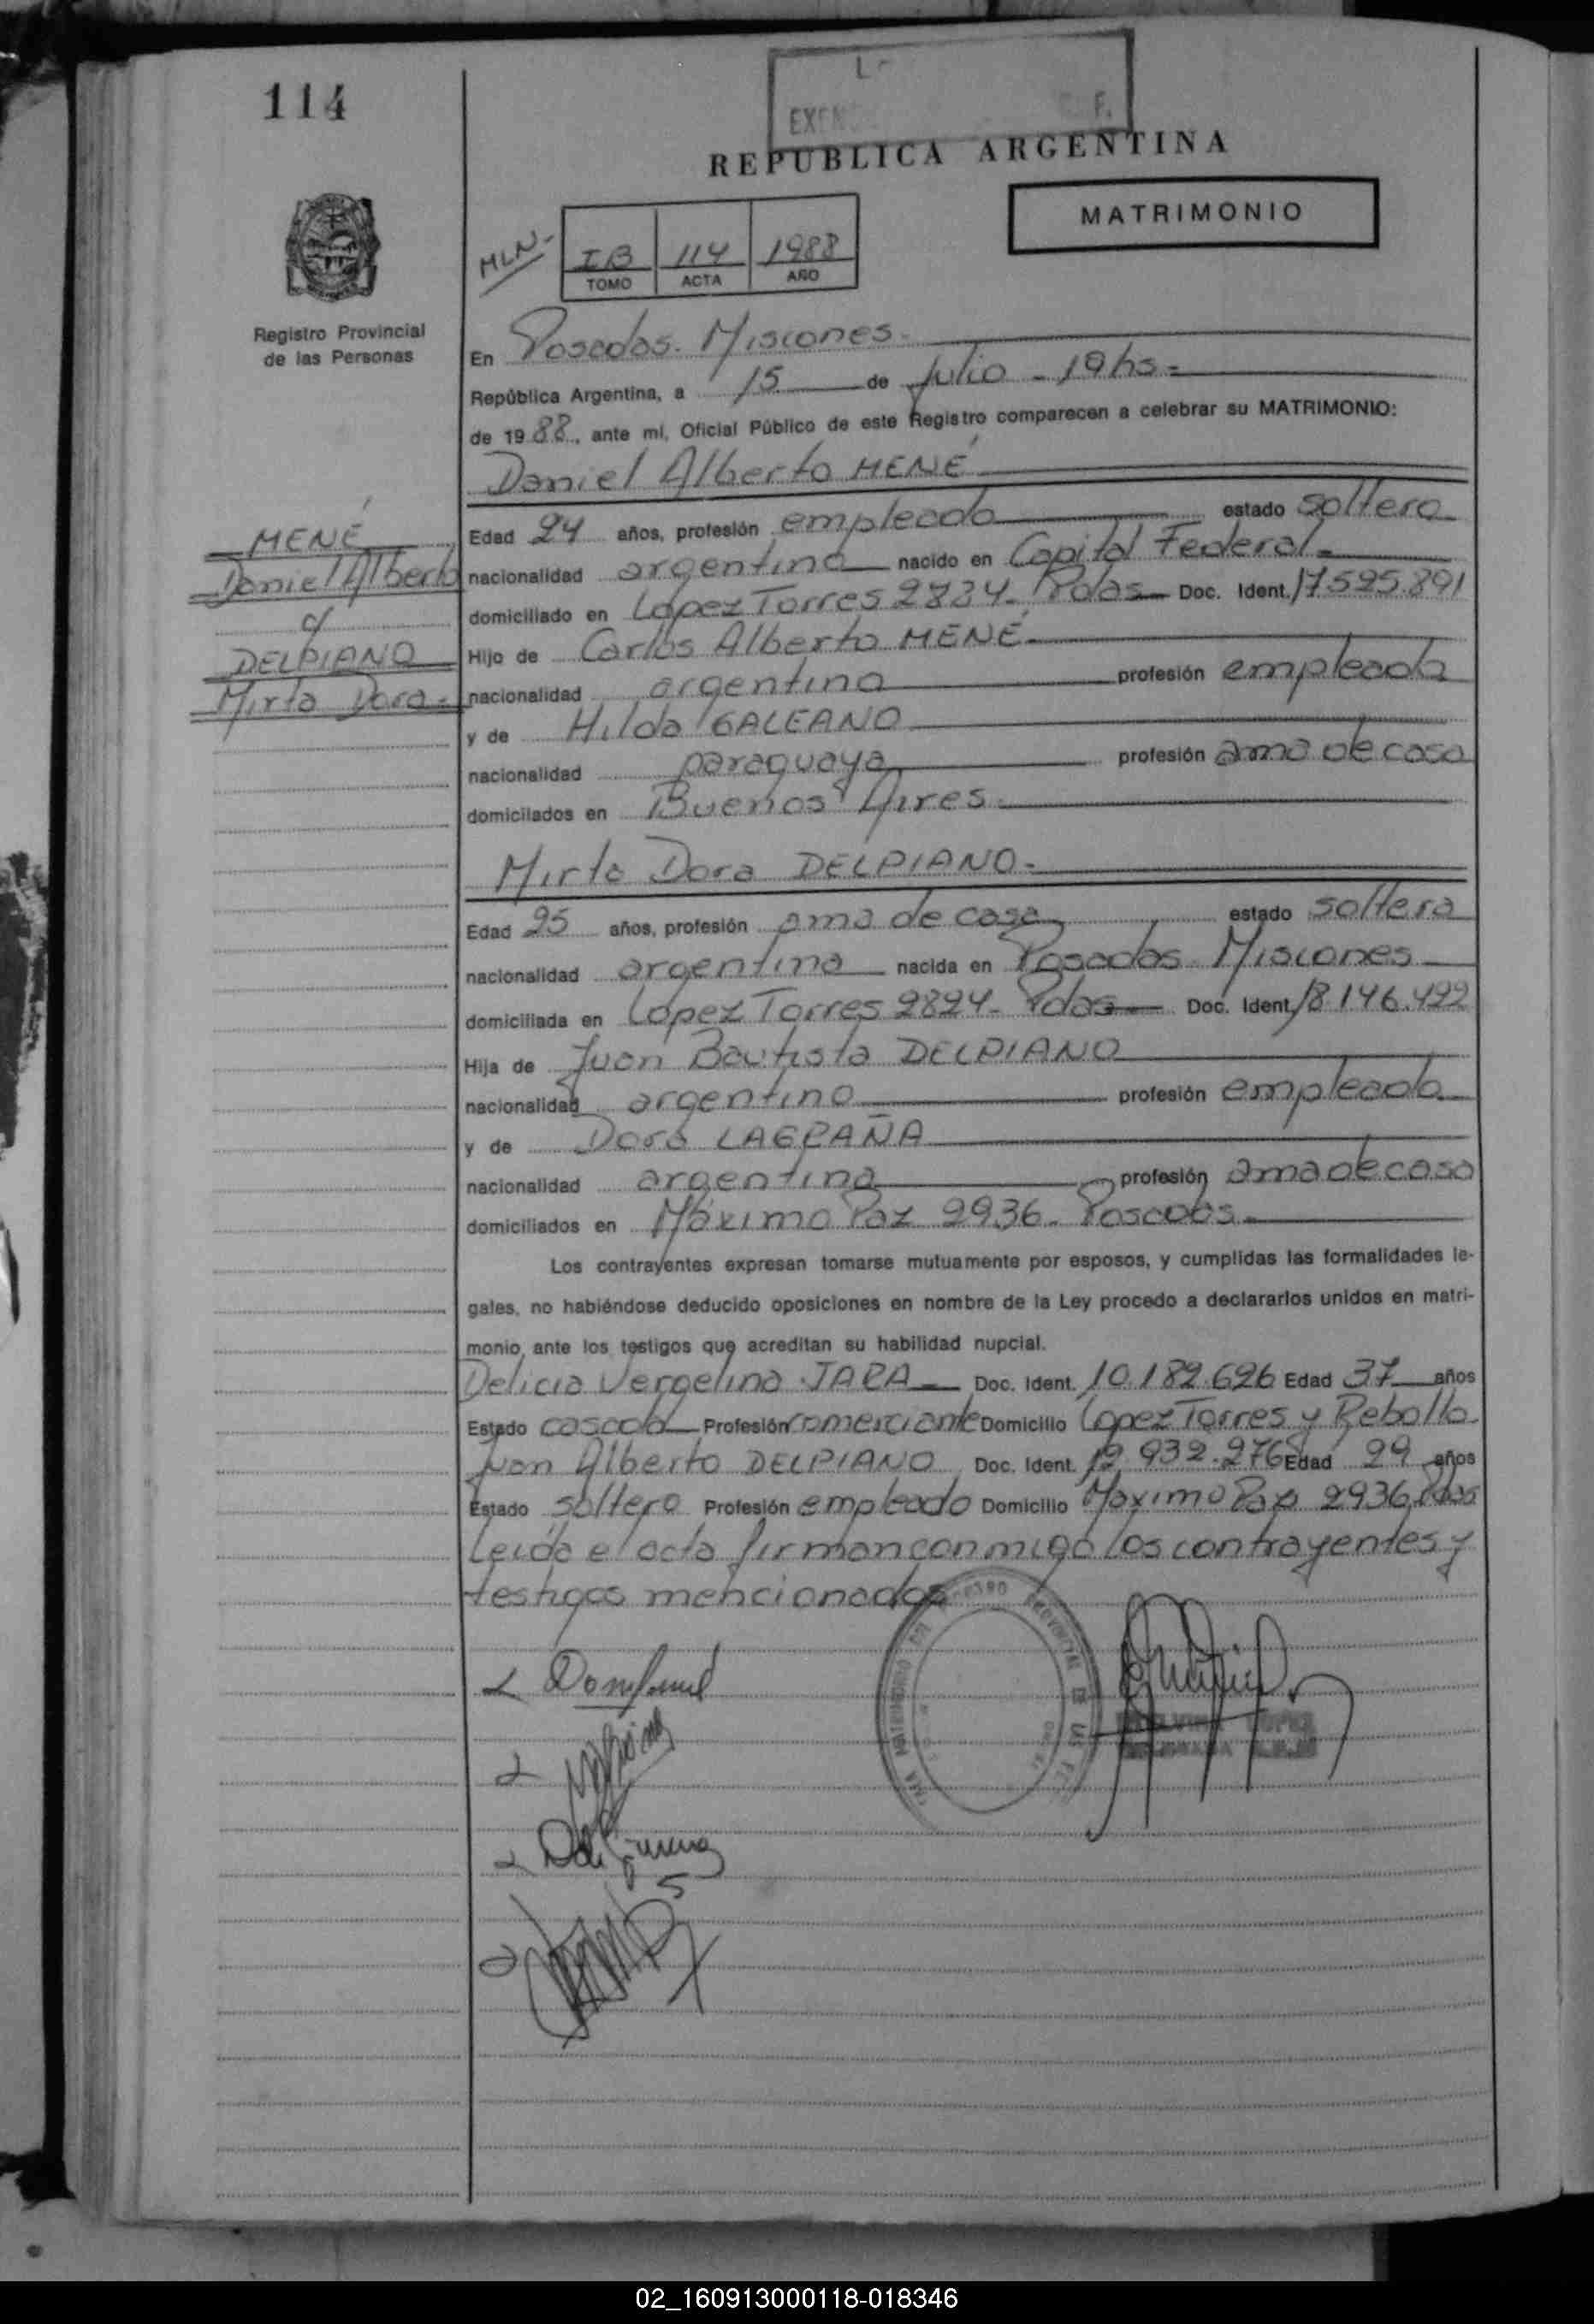 114
EXEN F.
REPUBLICA ARGENTINA
MATRIMONIO
MLN-
IB 114 1988
TOMO ACTA AÑO
Registro Provincial
de las Personas
En Posadas. Misiones.
República Argentina, a 15 de Julio - 19 hs.
de 1988, ante mí, Oficial Público de este Registro comparecen a celebrar su MATRIMONIO:
Daniel Alberto MENÉ
Edad 24 años, profesión empleado estado soltero
nacionalidad argentino nacido en Capital Federal.
domiciliado en Lopez Torres 2824- Pdas Doc. Ident. 17.525.891
Hijo de Carlos Alberto MENÉ
nacionalidad argentino profesión empleado
y de Hilda GALEANO
nacionalidad paraguaya profesión ama de casa
domicilados en Buenos Aires.
MENÉ
Daniel Alberto
c/
DELPIANO
Mirta Dora.
Mirta Dora DELPIANO.
Edad 25 años, profesión ama de casa estado soltera
nacionalidad argentina nacida en Posadas Misiones
domiciliada en Lopez Torres 2824- Pdas Doc. Ident. 18.146.422
Hija de Juan Bautista DELPIANO
nacionalidad argentino profesión empleado
y de Dora LAGRAÑA
nacionalidad argentina profesión ama de casa
domiciliados en Máximo Paz 2936. Posadas.
Los contrayentes expresan tomarse mutuamente por esposos, y cumplidas las formalidades le-
gales, no habiéndose deducido oposiciones en nombre de la Ley procedo a declararlos unidos en matri-
monio, ante los testigos que acreditan su habilidad nupcial.
Delicia Vergelina JARA Doc. Ident. 10.182.626 Edad 37 años
Estado casada Profesión comerciante Domicilio Lopez Torres y Rebollo
Juan Alberto DELPIANO Doc. Ident. 12.932.276 Edad 29 años
Estado soltero Profesión empleado Domicilio Maximo Paz 2936 Pdas
Leída el acta firman conmigo los contrayentes y
testigos mencionados
02_160913000118-018346